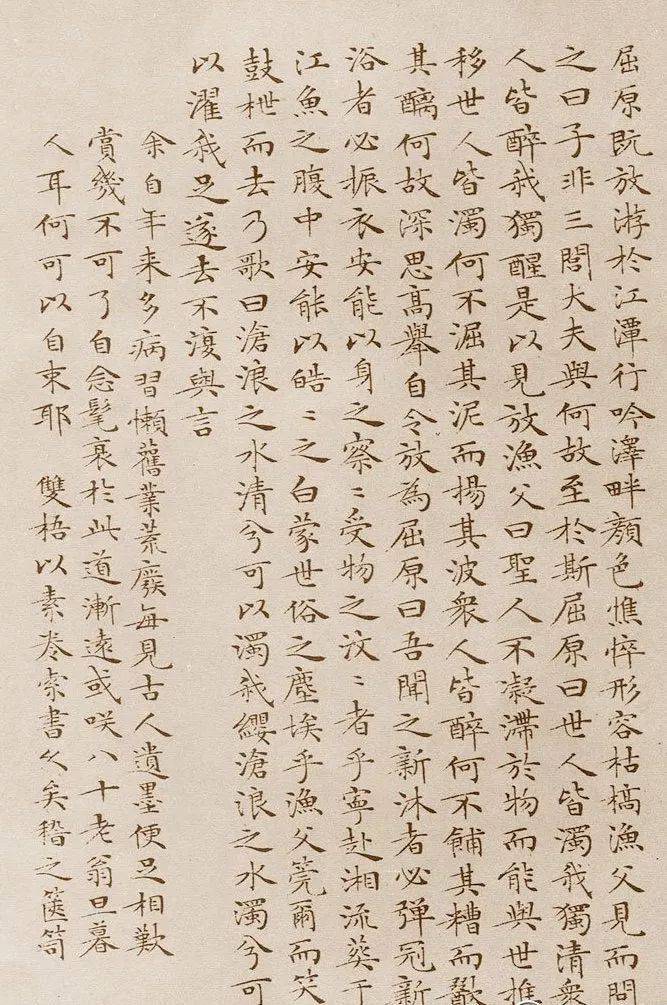 屈原既放游於江潭行吟澤畔顏色憔悴形容枯槁漁父見而問
之曰子非三閭大夫與何故至於斯屈原曰世人皆濁我獨清衆
人皆醉我獨醒是以見放漁父曰聖人不凝滯於物而能與世推
移世人皆濁何不淈其泥而揚其波衆人皆醉何不餔其糟而歠
其醨何故深思高舉自令放為屈原曰吾聞之新沐者必彈冠新
浴者必振衣安能以身之察〻受物之汶〻者乎寧赴湘流葬于
江魚之腹中安能以皓〻之白蒙世俗之塵埃乎漁父莞爾而笑
鼓枻而去乃歌曰滄浪之水清兮可以濁我纓滄浪之水濁兮可
以濯我足遂去不復與言
余自年来多病習懶舊業荒廢每見古人遺墨便足相歎
賞幾不可了自念髦衰於此道漸遠或咲八十老翁旦暮
人耳何可以自束耶 雙梧以素卷索書久矣稽之篋笥